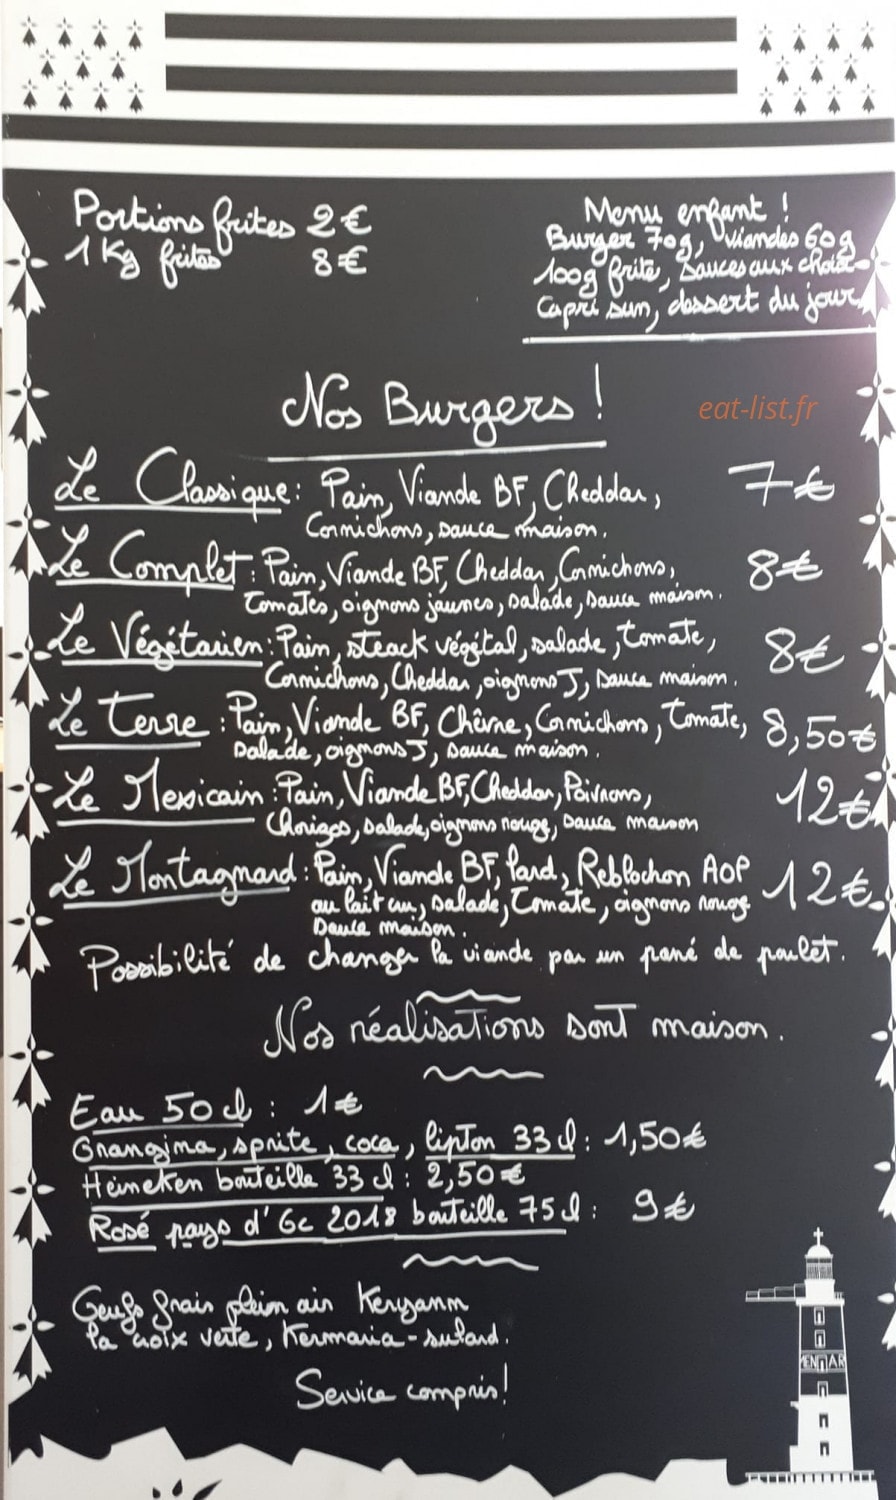 Portions frites 2€
1 Kg frites 8€
Menu enfant !
Burger 70g, viandes 60g
100g frite, sauces aux choix
Capri sun, dessert du jour
Nos Burgers !
eat-list.fr
Le Classique : Pain, Viande BF, Cheddar, 7€
Cornichons, sauce maison.
Le Complet : Pain, Viande BF, Cheddar, Cornichons, 8€
tomates, oignons jaunes, salade, sauce maison.
Le Végétarien : Pain, steack végétal, salade, tomate, 8€
Cornichons, Cheddar, oignons J, sauce maison.
Le Terre : Pain, Viande BF, Chêvre, Cornichons, tomate, 8,50€
salade, oignons J, sauce maison.
Le Mexicain : Pain, Viande BF, Cheddar, Poivrons, 12€
Chorizos, salade, oignons rouge, sauce maison
Le Montagnard : Pain, Viande BF, lard, Reblochon AOP 12€
au lait cru, salade, tomate, oignons rouge
sauce maison.
Possibilité de changer la viande par un pané de poulet.
Nos réalisations sont maison.
Eau 50cl : 1€
Orangina, sprite, coca, lipton 33cl : 1,50€
Heineken bouteille 33cl : 2,50€
Rosé pays d'Oc 2018 bouteille 75cl : 9€
Oeufs frais plein air Keryann
la croix verte, Kermaria-sulard.
Service compris!
MEN AR